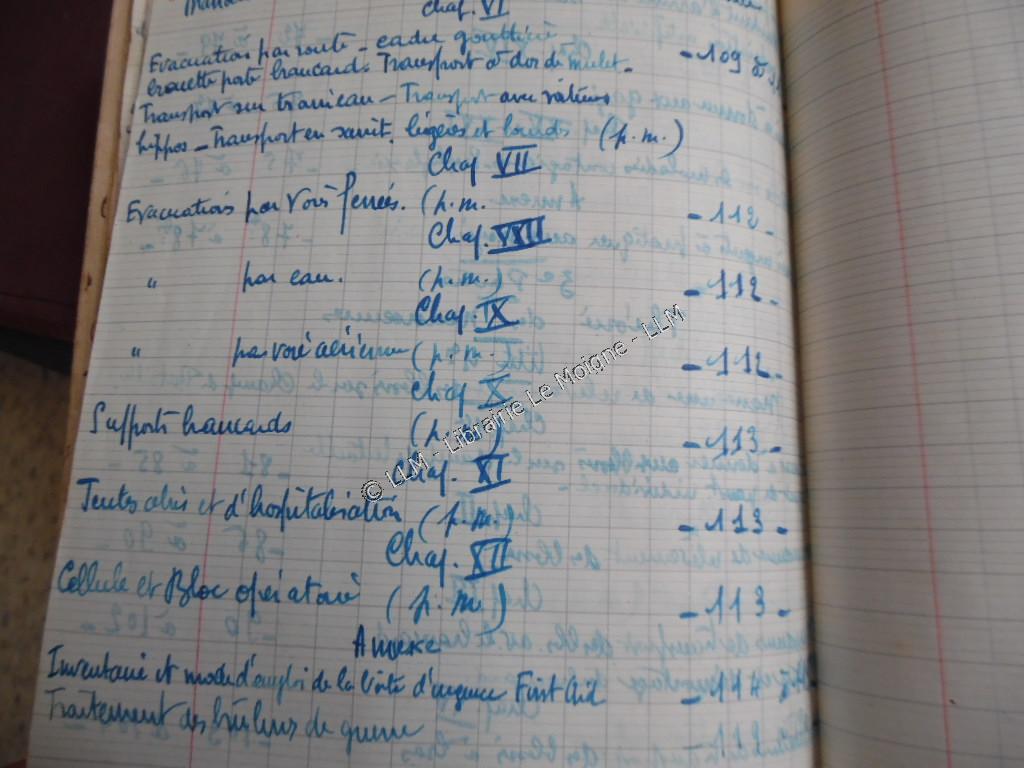 Chap. VI
Evacuation par route - cadre gouttière - 109 à
brouette porte brancard - Transport à dos de mulet -
Transport sur traineau - Transport avec voitures
hippos - Transport en sanit. légères et lourds (p.m.)
Chap. VII
Evacuations par voies ferrées. (p.m. - 112 -
Chap. VIII
" par eau. (p.m.) - 112 -
Chap. IX
" par voie aérienne (p.m.) - 112 -
Chap X
Supports brancards (p.m.) - 113 -
Chap. XI
Tentes abris et d'hospitalisation (p.m.) - 113 -
Chap. XII
Cellule et Bloc opératoire (p.m.) - 113 -
Annexe
Inventaire et mode d'emploi de la boite d'urgence First Aid - 114
Traitement des brûlures de guerre
© LLM - Librairie Le Moigne - LLM